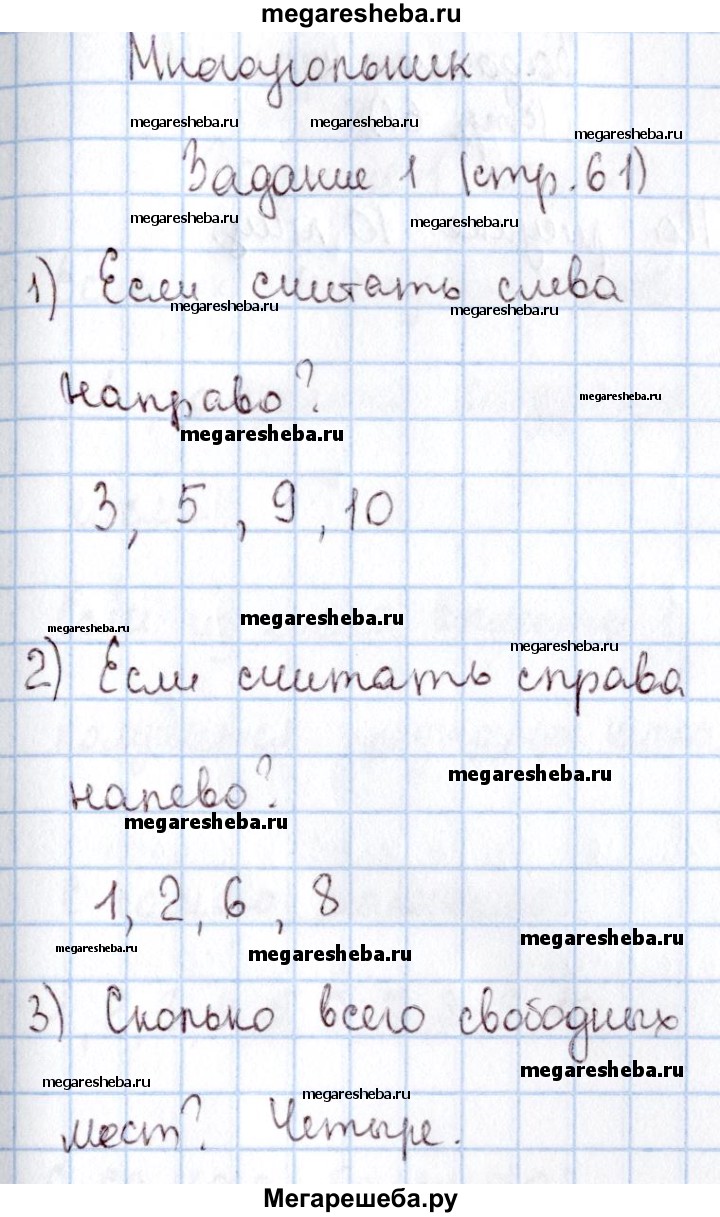 megaresheba.ru
Многоугольник
megaresheba.ru megaresheba.ru megaresheba.ru
Задание 1 (стр. 61)
megaresheba.ru megaresheba.ru
1) Если считать слева
megaresheba.ru megaresheba.ru
направо?
megaresheba.ru
megaresheba.ru
3, 5, 9, 10
megaresheba.ru
megaresheba.ru
megaresheba.ru
2) Если считать справа
налево?
megaresheba.ru
megaresheba.ru
1, 2, 6, 8
megaresheba.ru megaresheba.ru megaresheba.ru
3) Сколько всего свободных
megaresheba.ru megaresheba.ru megaresheba.ru
мест? Четыре.
Мегарешеба.ру